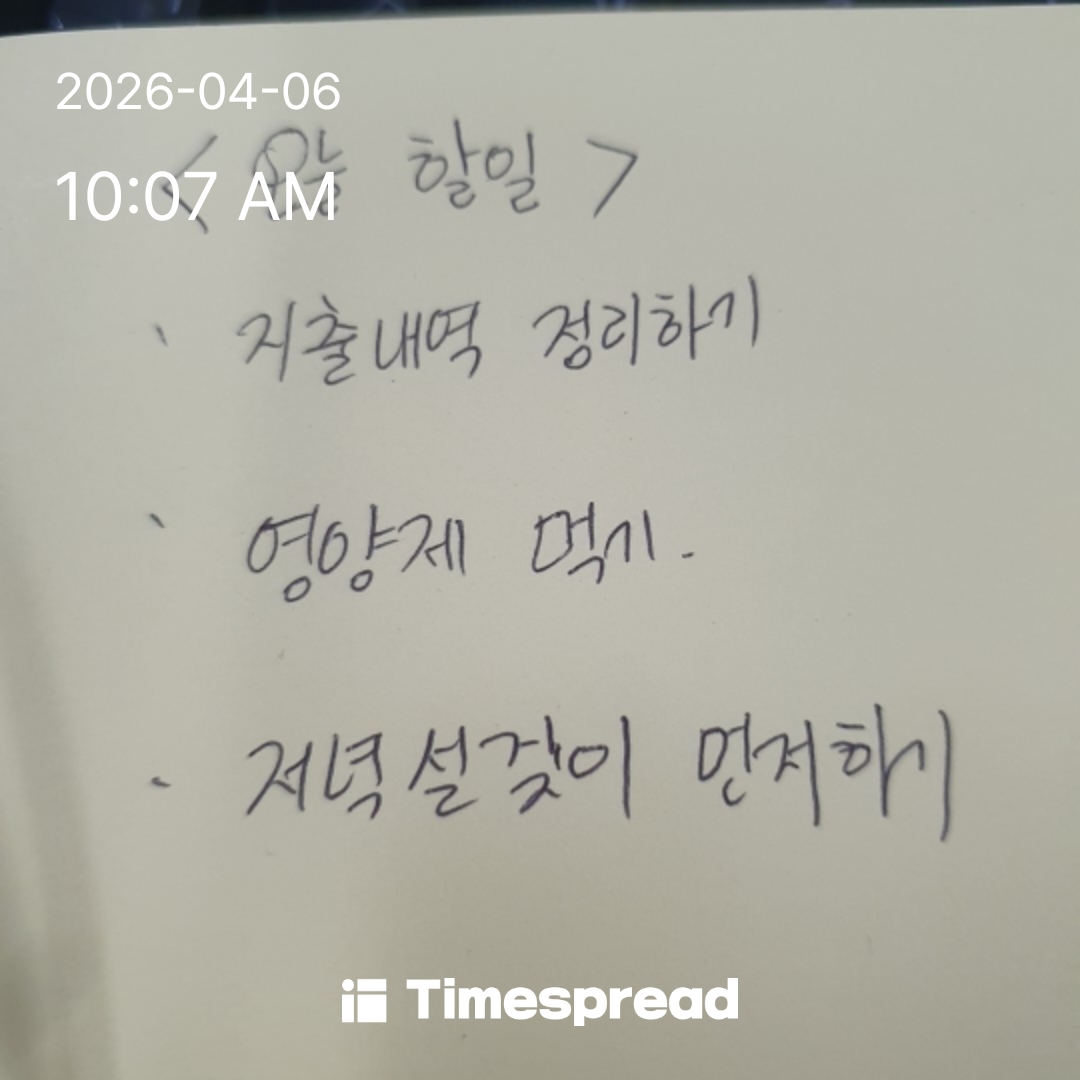 2026-04-06
< 오늘 할일 >
10:07 AM
· 지출내역 정리하기
· 영양제 먹기.
· 저녁설겆이 먼저하기
Timespread